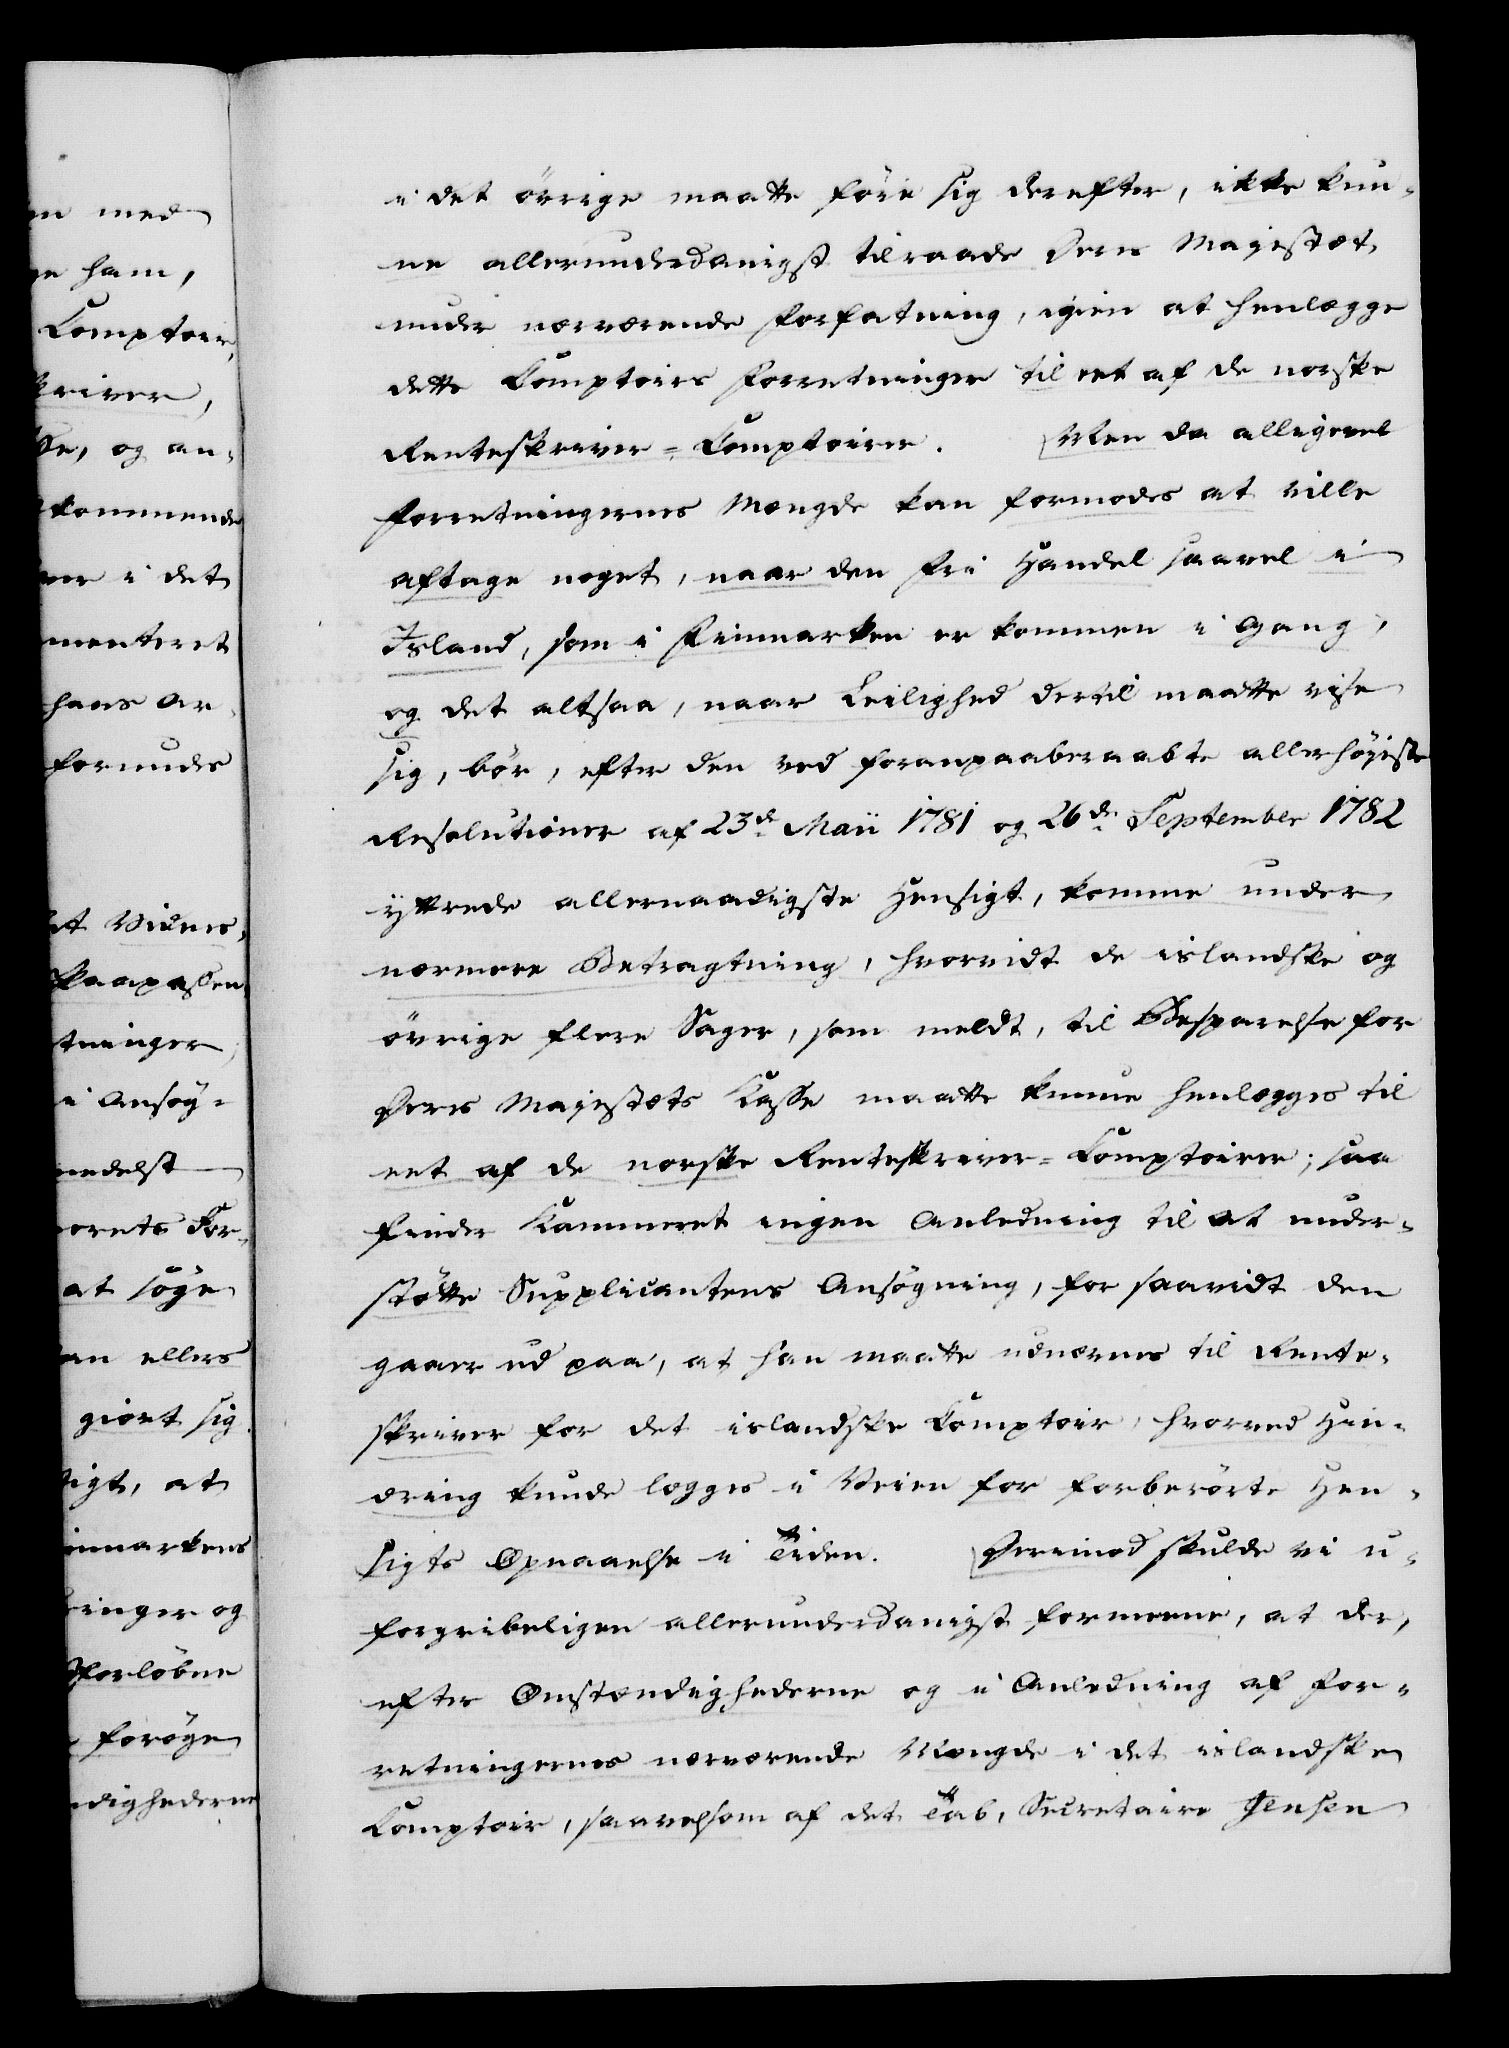 en med
ge ham,
Comptoir,
kriver,
sse, og an-
kommende
ver i det
menteret
hans Ar-
forundes
et Vidnes-
kaapassen
tninger,
i Ansøg-
medelst
orets For-
at søge
an ellers
giort sig
tigt, at
inmarkens
ringer og
forløbne
forøge
ndighederne
i det övrige maatte föie sig derefter, ikke kun-
ne allerunderdanigst tilraade Deres Majestæt,
under nærværende Forfatning, igien at henlægge
dette Comptoirs Forretninger til eet af de norske
Renteskriver-Comptoirer. Men da alligevel
Forretningernes Mængde kan formodes at ville
aftage noget, naar den frie Handel saavel i
Island, som i Finmarken er kommen i Gang,
og det altsaa, naar Leilighed dertil maatte vise
sig, bör, efter den ved foranpaaberaabte allerhöieste
Resolutioner af 23de Maii 1781 og 26de September 1782
yttrede allernaadigste Hensigt, komme under
nærmere Betragtning, hvorvidt de islandske og
övrige flere Sager, som meldt, til Besparelse for
Deres Majestæts Kasse maatte kunne henlægges til
eet af de norske Renteskriver-Comptoirer; saa
finder Kammeret ingen Anledning til at under-
stötte Supplicantens Ansögning, for saavidt den
gaaer ud paa, at han maatte udnævnes til Rente-
skriver for det islandske Comptoir, hvorved Hin-
dring kunde lægges i Veien for forberörte Hen-
sigts Opnaaelse i Tiden. Derimod skulde vi u-
forgribeligen allerunderdanigst formeene, at der,
efter Omstændighederne og i Anledning af For-
retningernes nærværende Mængde i det islandske
Comptoir, saavelsom af det Tab, Secretaire Jensen